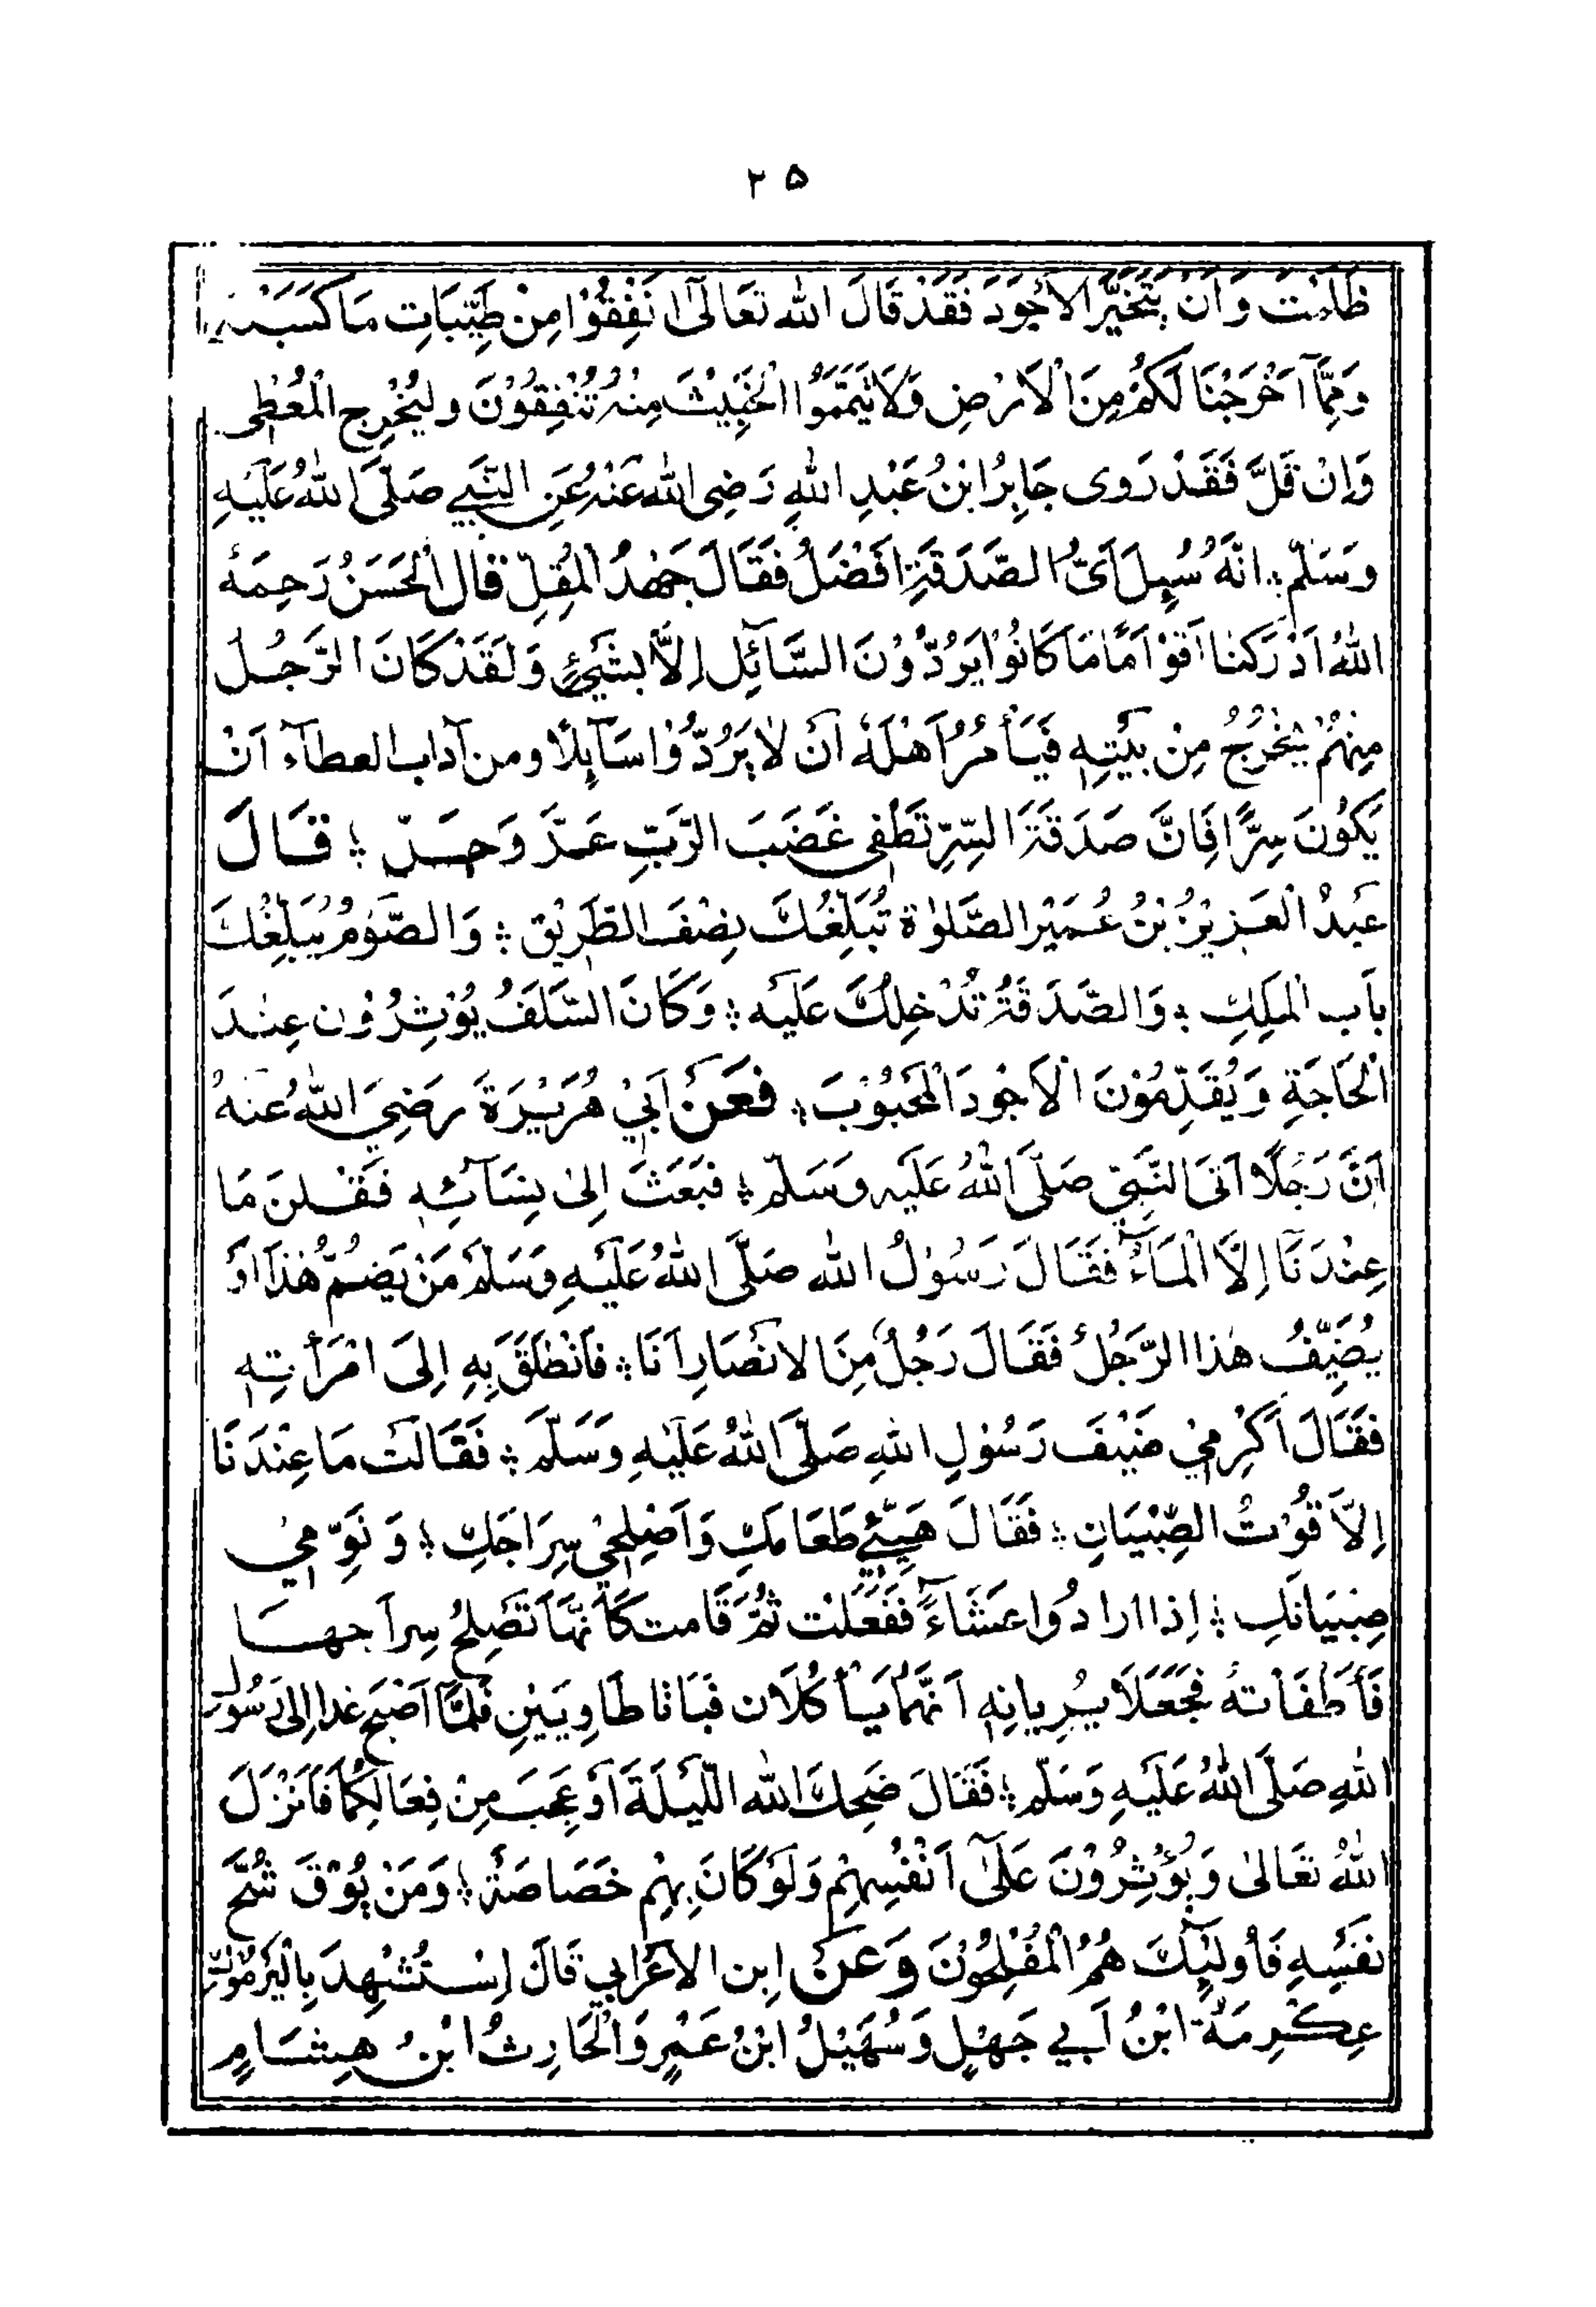 ۲۵
ظَلَمْتَ وَاَنْ يَتَخَيَّرَ الْاَجْوَدَ فَقَدْ قَالَ اللّٰه تَعَالٰى اَنْفِقُوْا مِنْ طَيِّبَاتِ مَا كَسَبْتُمْ
وَمِمَّآ اَخْرَجْنَا لَكُمْ مِنَ الْاَرْضِ وَلَا تَيَمَّمُوا الْخَبِيْثَ مِنْهُ تُنْفِقُوْنَ وليُخْرِجِ الْمُعْطِى
وَاِنْ قَلَّ فَقَدْ رَوى جَابِرُ ابْنُ عَبْدِ اللّٰهِ رَضِى اللّٰهُ عَنْهُ عَنِ النَّبِيِّ صَلَّى اللّٰهُ عَلَيْهِ
وَسَلَّمَ ؛ اَنَّهُ سُئِلَ اَىُّ الصَّدَقَةِ اَفْضَلُ فَقَالَ جَهْدُ الْمُقِلِّ قَالَ الْحَسَنُ رَحِمَهُ
اللّٰهُ اَدْرَكْنَا اَقْوَامًا مَا كَانُوْا يَرُدُّوْنَ السَّآئِلَ اِلَّا بِشَيْءٍ وَلَقَدْ كَانَ الرَّجُلُ
مِنْهُمْ يَخْرُجُ مِنْ بَيْتِهٖ فَيَأْمُرُ اَهْلَهُ اَنْ لَا يَرُدُّوْا سَآئِلًا ومن آداب العطآء اَنْ
يَكُوْنَ سِرًّا فَاِنَّ صَدَقَةَ السِّرِّ تُطْفِى غَضَبَ الرَّبِّ عَزَّ وَجَلَّ ؛ قَالَ
عَبْدُ الْعَزِيْزِ بْنُ عُمَيْرٍ الصَّلوٰة تُبَلِّغُكَ نِصْفَ الطَّرِيْقِ ؛ وَالصَّوْمُ يُبَلِّغُكَ
بَاب الْمَلِكِ ؛ وَالصَّدَقَةُ تُدْخِلُكَ عَلَيْهِ ؛ وَكَانَ السَّلَفُ يُؤْثِرُوْن عِنْدَ
الْحَاجَةِ وَيُقَدِّمُوْنَ الْاَجْوَدَ الْمَحْبُوْبَ ؛ فَعَنْ اَبِيْ هُرَيْرَةَ رَضِيَ اللّٰهُ عَنْهُ
اَنَّ رَجُلًا اَتَى النَّبِيَّ صَلَّى اللّٰهُ عَلَيْهِ وَسَلَّمَ ؛ فَبَعَثَ اِلٰى نِسَآئِهٖ فَقُلْنَ مَا
عِنْدَنَآ اِلَّا الْمَآءُ فَقَالَ رَسُوْلُ اللّٰه صَلَّى اللّٰهُ عَلَيْهِ وَسَلَّمَ مَنْ يَضُمُّ هٰذَا اَوْ
يُضَيِّفُ هٰذَا الرَّجُلَ فَقَالَ رَجُلٌ مِنَ الْاَنْصَارِ اَنَا ؛ فَانْطَلَقَ بِهٖ اِلَى امْرَأَتِهٖ
فَقَالَ اَكْرِمِيْ ضَيْفَ رَسُوْلِ اللّٰهِ صَلَّى اللّٰهُ عَلَيْهِ وَسَلَّمَ ؛ فَقَالَتْ مَا عِنْدَنَا
اِلَّا قُوْتُ الصِّبْيَانِ ؛ فَقَالَ هَيِّئِي طَعَامَكِ وَاَصْلِحِيْ سِرَاجَكِ ؛ وَنَوِّمِيْ
صِبْيَانَكِ ؛ اِذَا ارادُوا عَشَاءً فَفَعَلَتْ ثُمَّ قَامت كَاَنَّهَا تُصْلِحُ سِرَاجها
فَأَطْفَأَتْهُ فَجَعَلَا يُرِيانِهٖ اَنَّهُمَا يَأْكُلَان فَبَاتَا طَاوِيَيْنِ فَلَمَّآ اَصْبَحَ غَدا اِلىٰ رَسُوْلِ
اللّٰهِ صَلَّى اللّٰهُ عَلَيْهِ وَسَلَّمَ ؛ فَقَالَ ضَحِكَ اللّٰه اللَّيْلَةَ اَوْ عَجِبَ مِنْ فِعَالِكُمَا فَاَنْزَلَ
اللّٰهُ تَعَالىٰ وَيُؤْثِرُوْنَ عَلٰٓى اَنْفُسِهِمْ وَلَوْ كَانَ بِهِمْ خَصَاصَةٌ ؛ وَمَنْ يُوْقَ شُحَّ
نَفْسِهٖ فَأُولٰٓئِكَ هُمُ الْمُفْلِحُوْنَ وَعَنْ اِبن الْاَعْرَابِي قَالَ اِسْتُشْهِدَ بِالْيَرْمُوْكِ
عِكْرِمَةُ ابْنُ اَبِي جَهْلٍ وَسُهَيْلُ ابْنُ عَمْرٍ وَالْحَارِثُ ابْنُ هِشَامٍ